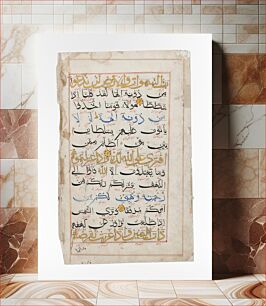 رب السموات والارض لن ندعوا
من دونه الها لقد قلنا اذا
شططا هؤلاء قومنا اتخذوا
من دونه الهة لولا
ياتون عليهم بسلطان
بين فمن اظلم ممن
افترى على الله كذبا واذ اعتزلتموهم
وما يعبدون الا الله فاووا الى
الكهف ينشر لكم ربكم من
رحمته ويهيئ لكم من
امركم مرفقا وترى الشمس
اذا طلعت تزور عن كهفهم
ذات اليمين واذا غربت تقرضهم